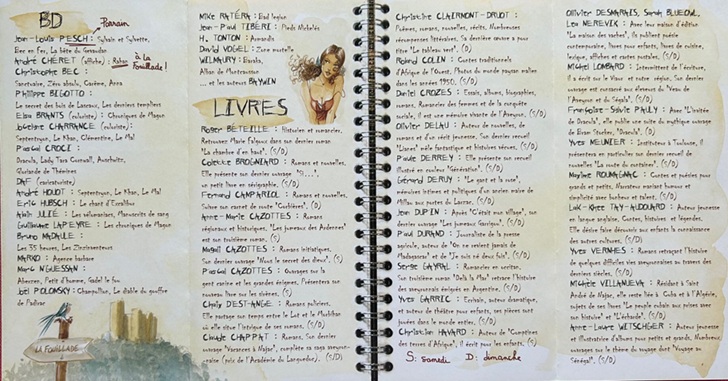 BD
Parrain
Jean-Louis PESCH : Sylvain et Sylvette,
Bec en Fer, La bête du Gévaudan
André CHERET (affiche) : Rahan
à la Fouillade !
Christophe BEC :
Sanctuaire, Zéro absolu, Carême, Anna
Philippe BEGOTTO :
Le secret des bois de Lascaux, Les derniers templiers
Elsa BRANTS (coloriste) : Chroniques de Magon
Joceline CHARRANCE (coloriste) :
Septentryon, Le Khan, Clémentine, Le Mal
Pascal CROCI :
Dracula, Lady Tara Cornwall, Auschwitz,
Gloriande de Thémines
DAF (caricaturiste)
André HOUOT : Septentryon, Le Khan, Le Mal
Eric HUBSCH : Le chant d'Excalibur
Alain JULIE : Les vélomaniacs, Manuscrits de sang
Guillaume LAPEYRE : Les chroniques de Magon
Bruno MADAULE :
Les 35 heures, Les Zinzinventeurs
MARKO : Agence barbare
Marc N'GUESSAN :
Petit d'homme, Gadel le fou
Joël POLOMSKY : Champollion, Le diable du gouffre
de Padirac
LA FOUILLADE
Mike RATERA : Bad legion
Jean-Paul TIBERI : Pieds Nickelés
H. TONTON : Amandis
David VOGEL : Zone mortelle
WILMAURY : Baraka,
Alban de Montcausson
... et les auteurs BAYWIN
LIVRES
Roger BETEILLE : Historien et romancier,
Retrouvez Marie Falgoux dans son dernier roman
"La chambre d'en haut". (S/D)
Colette BROGNIARD : Romans et nouvelles.
Elle présente son dernier ouvrage
un petit livre en sérigraphie. (S/D)
Fernand CAMPARIOL : Romans et nouvelles.
Suivre son carnet de route "Corbières". (D)
Anne-Marie CAZOTTES : Romans
régionaux et historiques. "Les jumeaux des Ardennes"
est son troisième roman. (S)
Magali CAZOTTES : Romans initiatiques.
Son dernier ouvrage "Nour le secret des dieux". (S)
Pascal CAZOTTES : Ouvrages sur la
gent canine et les grandes énigmes. Présentera son
nouveau livre sur les sirènes. (S)
Chrily DESTANGE : Romans policiers.
Elle partage son temps entre le Lot et le Morbihan
où elle situe l'intrigue de ses romans. (S/D)
Claude CHAPPAT : Roman. Son dernier
ouvrage "Vacances à Najac", complète sa saga aveyron-
naise (prix de l'Académie du Languedoc). (S/D)
Christine CLAIRMONT-DRUOT :
Poèmes, romans, recueils, récits. Nombreuses
récompenses littéraires. Sa dernière œuvre a pour
titre "Le tableau vert". (D)
Roland COLIN : Contes traditionnels
d'Afrique de l'Ouest. Photos du monde paysan malien
dans les années 1950. (S/D)
Daniel CROZES : Essais, albums, biographies,
romans. Romancier des femmes et de la conquête
sociale, il est une mémoire vivante de l'Aveyron. (S/D)
Olivier DELAU : Auteur de nouvelles, de
poésie et d'un récit jeunesse. Son dernier recueil
"Lianes" mêle fantastique et histoires vécues. (S/D)
Paule DERREY : Elle présente son recueil
illustré et poétique "Génération". (S/D)
Gérard DERUY : "Le gant et la rose",
mémoires intimes et politiques d'un ancien maire de
Millau aux portes du Larzac. (D)
Jean DUPIN : Après "C'était mon village", son
dernier ouvrage "Les jumeaux Savignac". (S/D)
Paul DURAND : Journaliste de la presse
agricole, auteur de "On ne revient jamais de
Madagascar" et de "Je suis né deux fois". (S/D)
Serge GAYRAL : Romancier en occitan.
Son troisième roman "Delà la Mar" retrace l'histoire
des aveyronnais émigrés en Argentine. (S/D)
Yves GARRIC : Ecrivain, auteur dramatique,
et auteur de théâtre pour enfants, ses pièces sont
jouées dans le monde entier. (S/D)
Christian HAVARD : Auteur de "Comptines
des terres d'Afrique", il écrit pour les enfants. (S)
S: samedi D: dimanche
Ollivier DESMARAIS, Sarah BLUEOWL,
Léa NEREVEK : Avec leur maison d'édition
"La maison des vaches", ils publient poésie
contemporaine, livres pour enfants, livres de cuisine,
lexique, affiches et cartes postales. (S/D)
Michel LOMBARD : Intermittent de l'écriture,
il a écrit sur le Viaur et notre région. Son dernier
ouvrage est consacré aux éleveurs de "Veau de
l'Aveyron et du Ségala". (S/D)
Françoise-Sylvie PAULY : Avec "L'invitée
de Dracula", elle publie une suite du mythique ouvrage
de Bram Stocker, "Dracula". (D)
Yves MEUNIER : Instituteur à Toulouse, il
présentera en particulier son dernier recueil de
nouvelles "La route du container". (S/D)
Maxime ROUMAGNAC : Contes et poésies pour
grands et petits. Narrateur mariant humour et
simplicité avec bonheur et talent. (S/D)
Loik-Khee TAY-AUDOUARD : Auteur jeunesse
en langue anglaise. Contes, histoires et légendes.
Elle désire faire découvrir aux enfants la connaissance
des autres cultures. (S/D)
Yves VERNHES : Romans retraçant l'histoire
de quelques difficiles vies aveyronnaises au travers des
derniers siècles. (S/D)
Michèle VILLANUEVA : Résidant à Saint
André de Najac, elle reste liée à Cuba et à l'Algérie,
sujets de ses livres "Le peuple cubain aux prises avec
son histoire" et "L'écharde". (S/D)
Anne-Laure WITSCHGER : Auteur jeunesse
et illustratrice d'albums pour petits et grands. Nombreux
ouvrages sur le thème du voyage dont "Voyage au
Sénégal". (S/D)